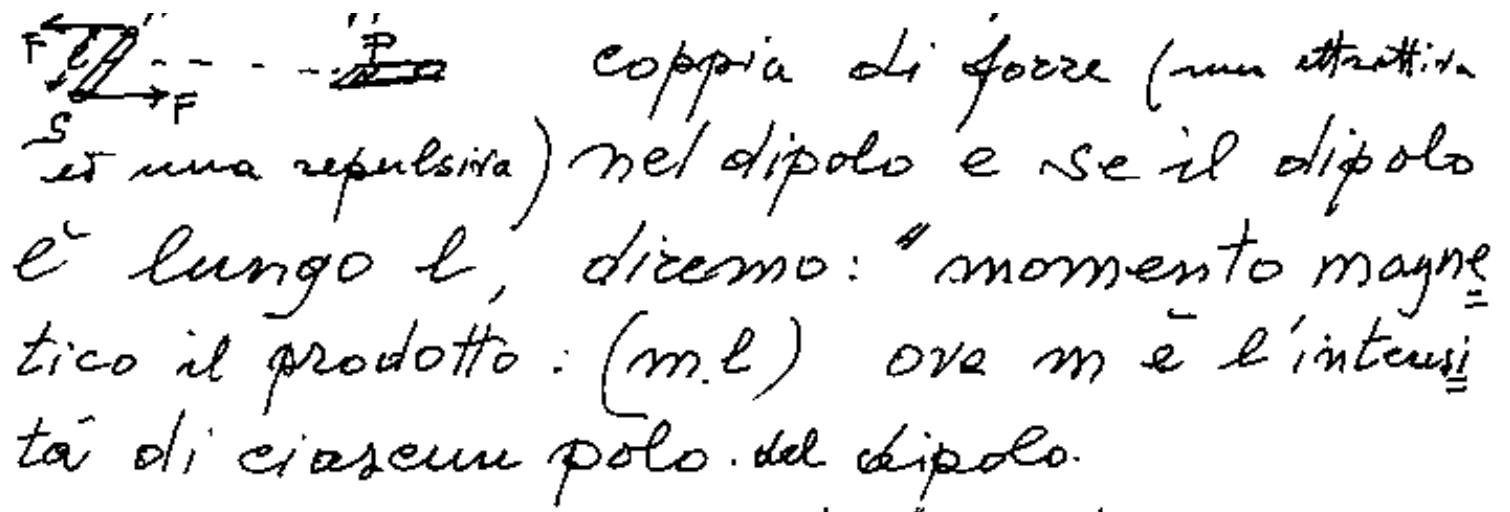 F l P coppia di forze (una attrattiva
S F
ed una repulsiva) nel dipolo e se il dipolo
è lungo l, diremo: "momento magne
tico il prodotto: (m.l) ove m è l'intensi
tà di ciascun polo. del dipolo.